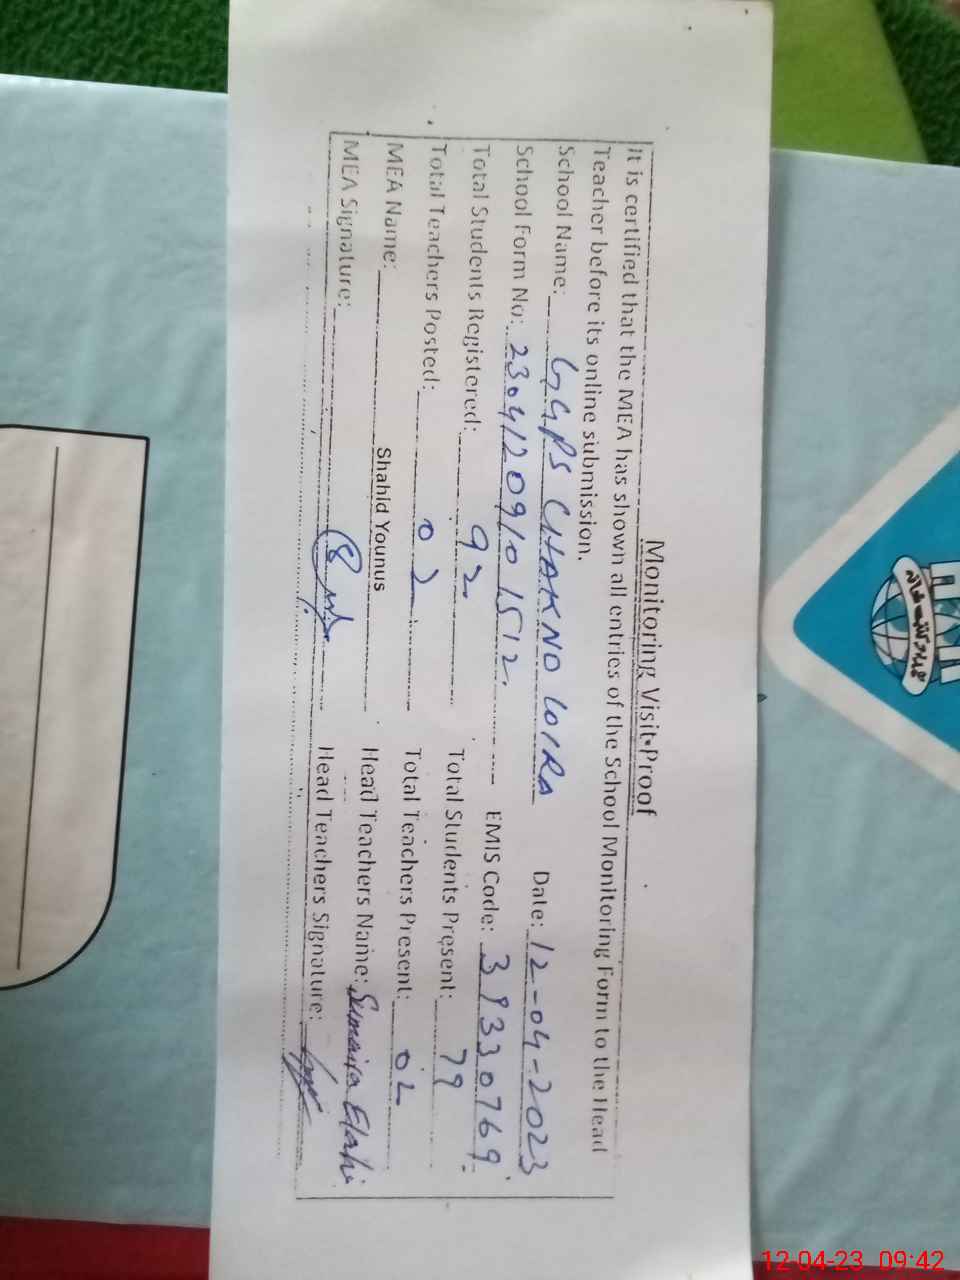 Monitoring Visit Proof
It is certified that the MEA has shown all entries of the School Monitoring Form to the Head
Teacher before its online submission.
School Name: GGPS CHAKNO 101RA Date: 12-04-2023
School Form No: 23041209101512. EMIS Code: 39330769
Total Students Registered: 92 Total Students Present: 79
Total Teachers Posted: 02 Total Teachers Present: 02
MEA Name: Shahid Younus Head Teachers Name: Sumaira Elahi
MEA Signature: Head Teachers Signature:
12-04-23 09:42